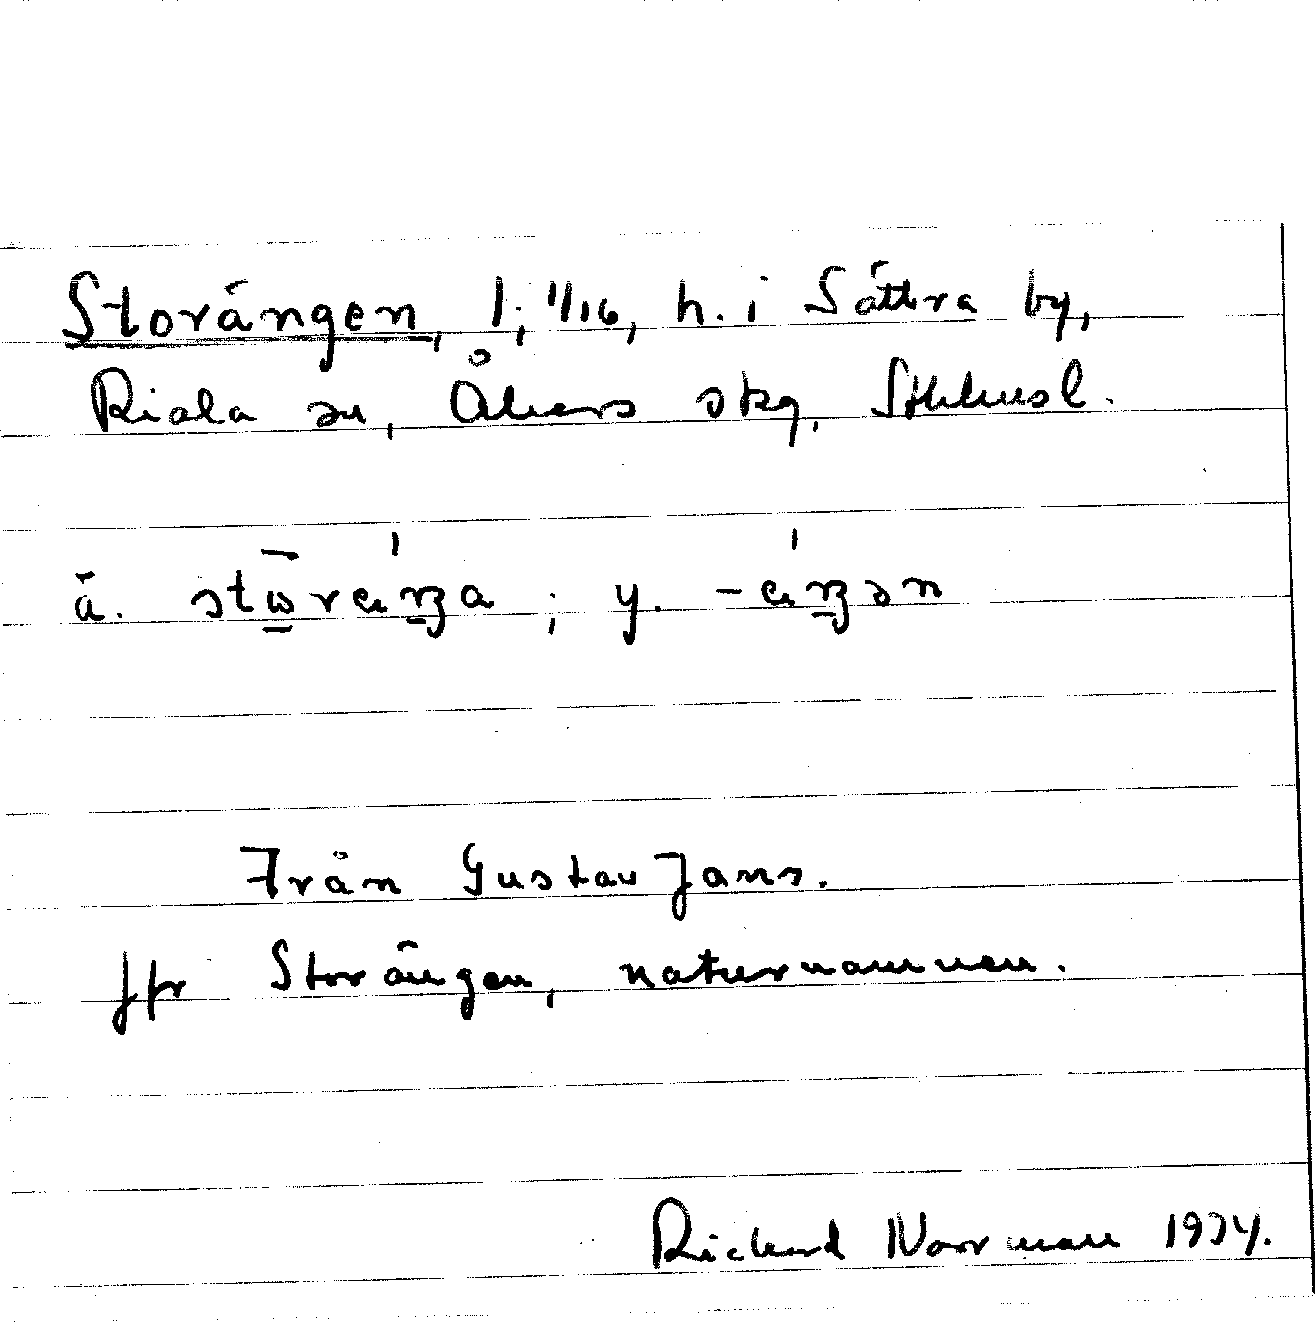 Storängen, 1; 1/16, h. i Sättra by,
Riala sn, Åkers skg, Sthlmsl.
ä. ; y.
Från Gustav Jans.
Jfr Storängen, naturnamnen.
Rickard Norrman 1934.